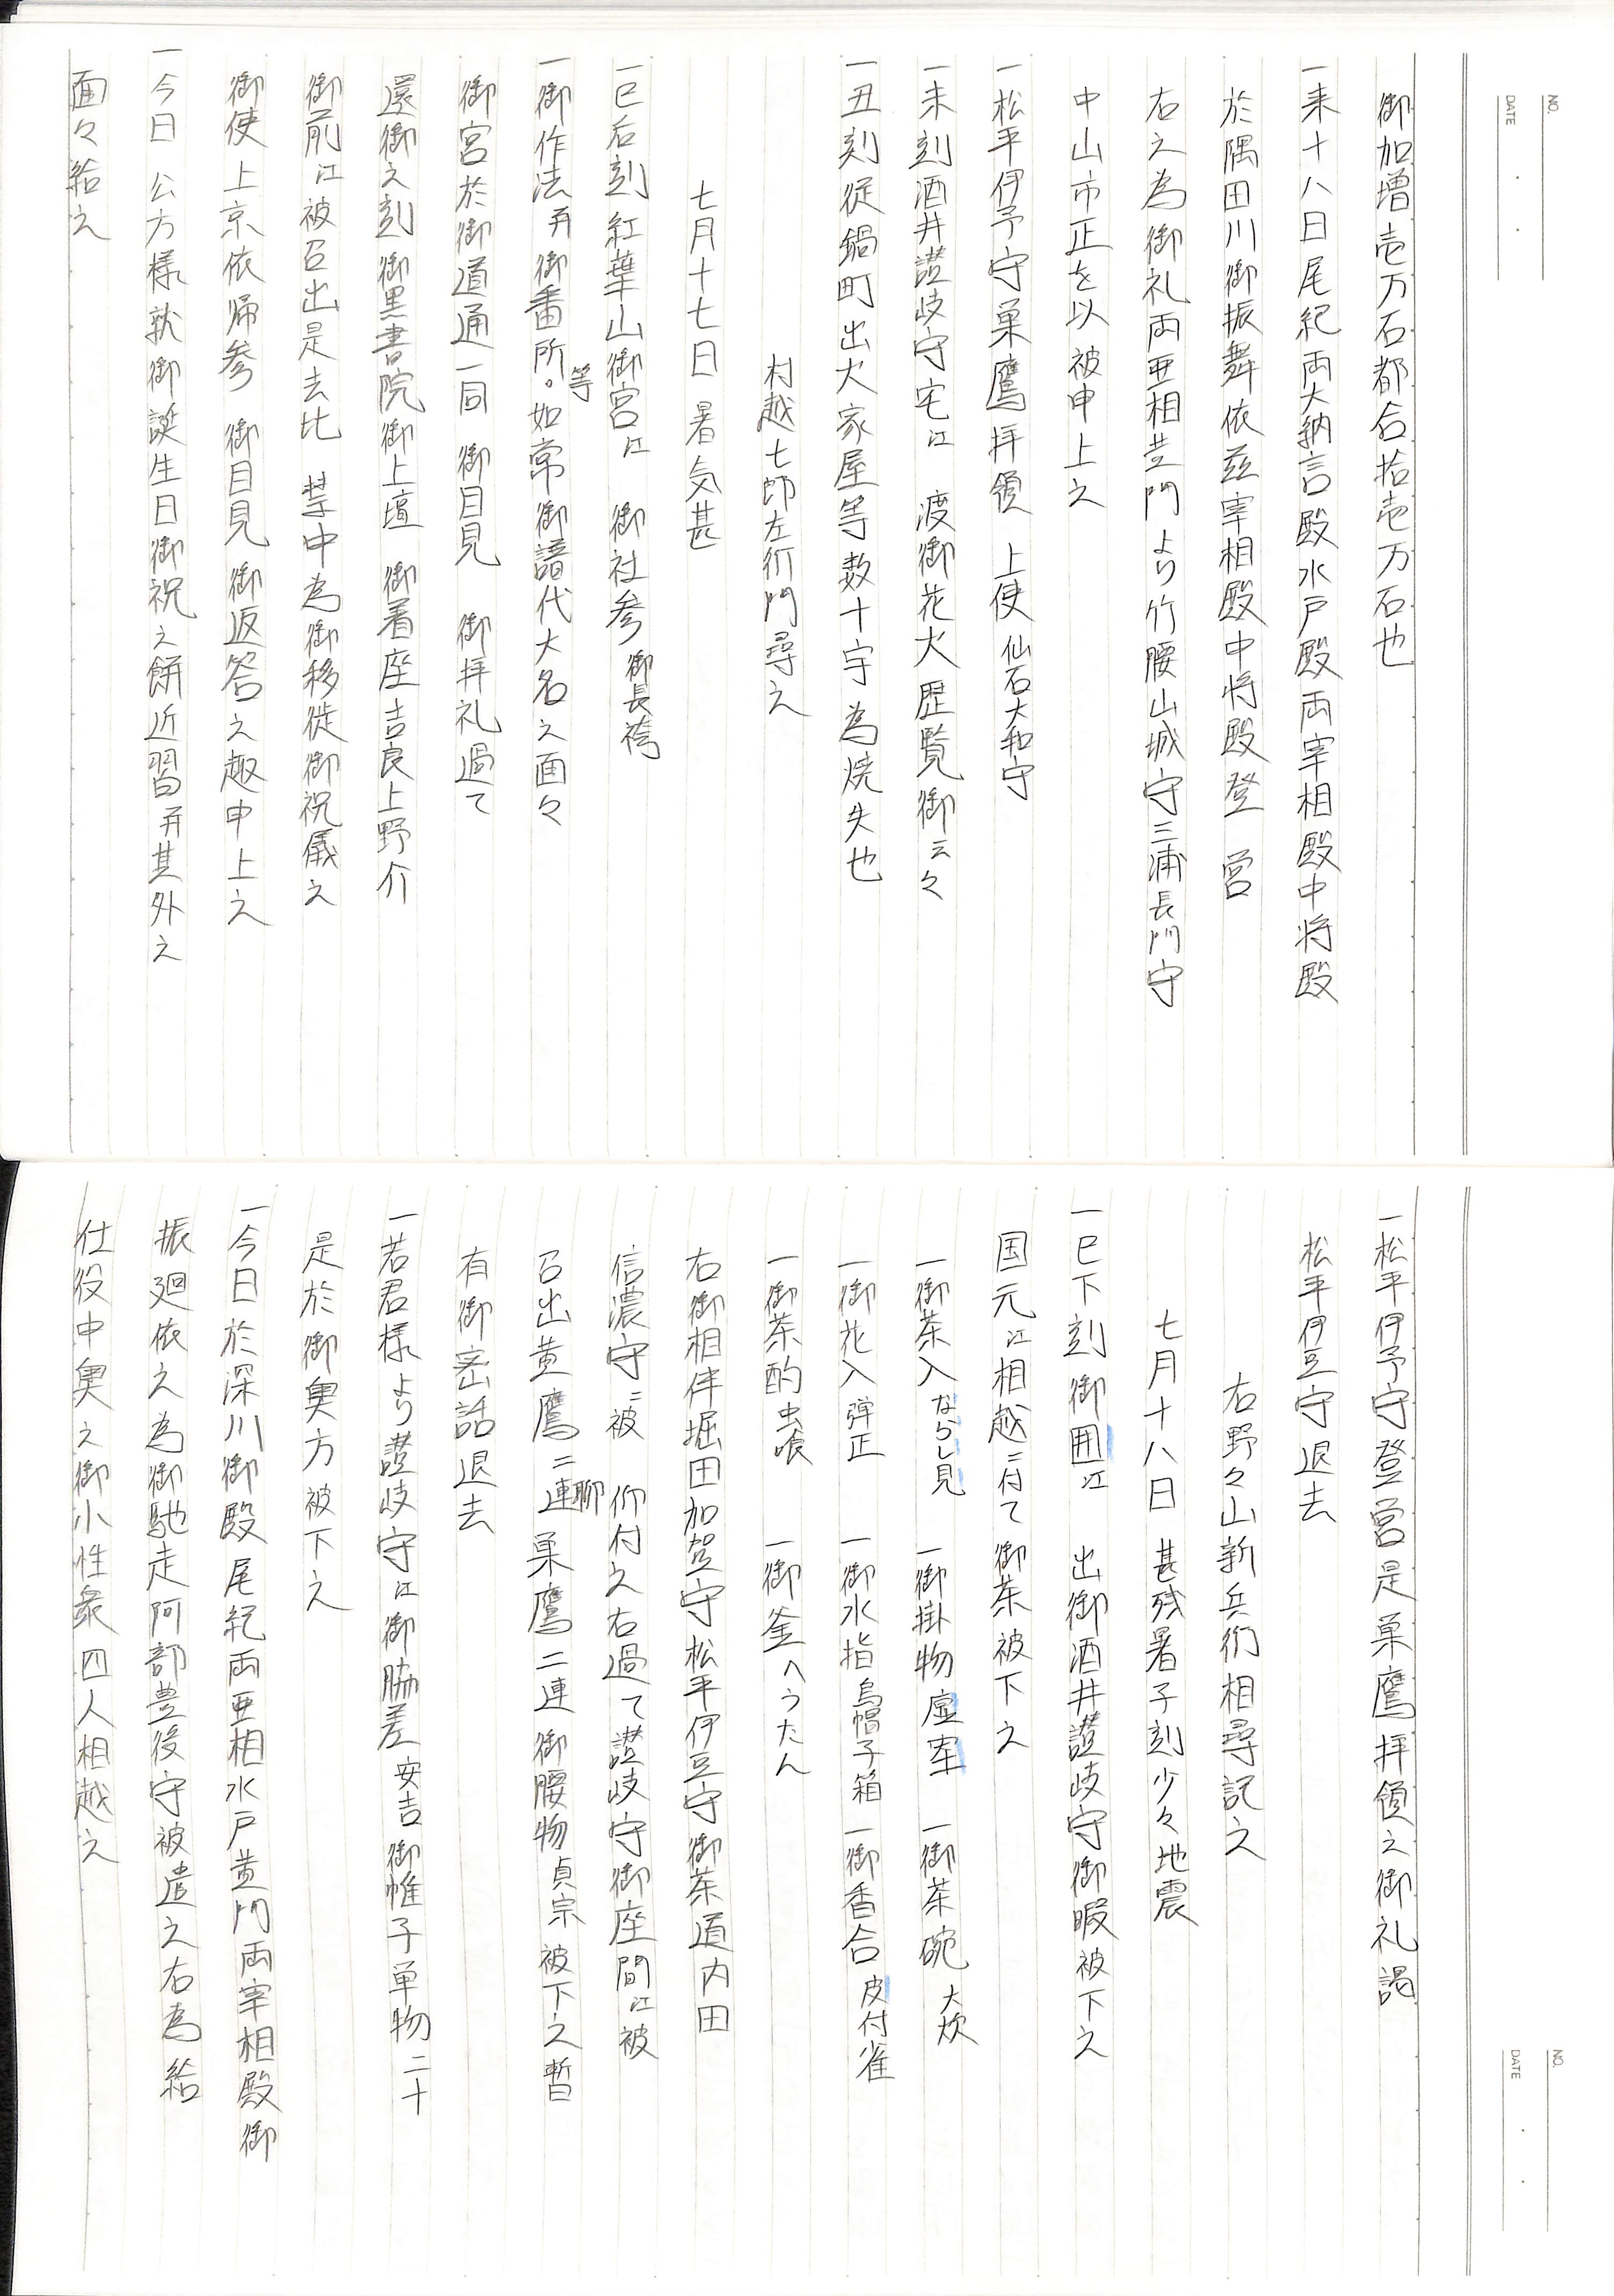 NO.
DATE
御加増壱万石都合拾壱万石也
一来十八日尾紀両大納言殿水戸殿両宰相殿中将殿
於隅田川御振舞依茲宰相殿中将殿登 営
右之為御礼両亜相黄門より竹腰山城守三浦長門守
中山市正を以被申上之
一松平伊予守巣鷹拝領 上使 仙石大和守
一未刻酒井讃岐守宅江 渡御花火歴覧御云々
一丑刻従鍋町出火家屋等数十宇為焼失也
村越七郎左衛門尋之
七月十七日 暑気甚
一巳后刻紅葉山御宮江 御社参 御長袴
一御作法并御番所。如常御譜代大名之面々
等
御宮於御道通一同 御目見 御拝礼過て
還御之刻御黒書院御上壇 御着座吉良上野介
御前江被召出是去比 禁中為御移徙御祝儀之
御使上京依帰参 御目見御返答之趣申上之
一今日 公方様就御誕生日御祝之餅近習并其外之
面々給之
NO.
DATE
一松平伊予守登営是巣鷹拝領之御礼謁
松平伊豆守退去
右野々山新兵衛相尋記之
七月十八日 甚残暑子刻少々地震
一巳下刻御囲江 出御酒井讃岐守御暇被下之
国元江相越ニ付て御茶被下之
一御茶入 ならし見 一御掛物 虚牢 一御茶碗 大炊
一御花入 弾正 一御水指 烏帽子箱 一御香合 皮付雀
一御茶酌 虫喰 一御釜 へうたん
右御相伴堀田加賀守松平伊豆守御茶道内田
信濃守ニ被 仰付之右過て讃岐守御座間江被
召出黄鷹二連巣鷹二連御腰物 貞宗 被下之暫
聊
有御密話退去
一若君様より讃岐守江御脇差 安吉 御帷子単物 二十
是於御奥方被下之
一今日於深川御殿尾紀両亜相水戸黄門両宰相殿御
振廻依之為御馳走阿部豊後守被遣之右為給
仕役中奥之御小性衆四人相越之